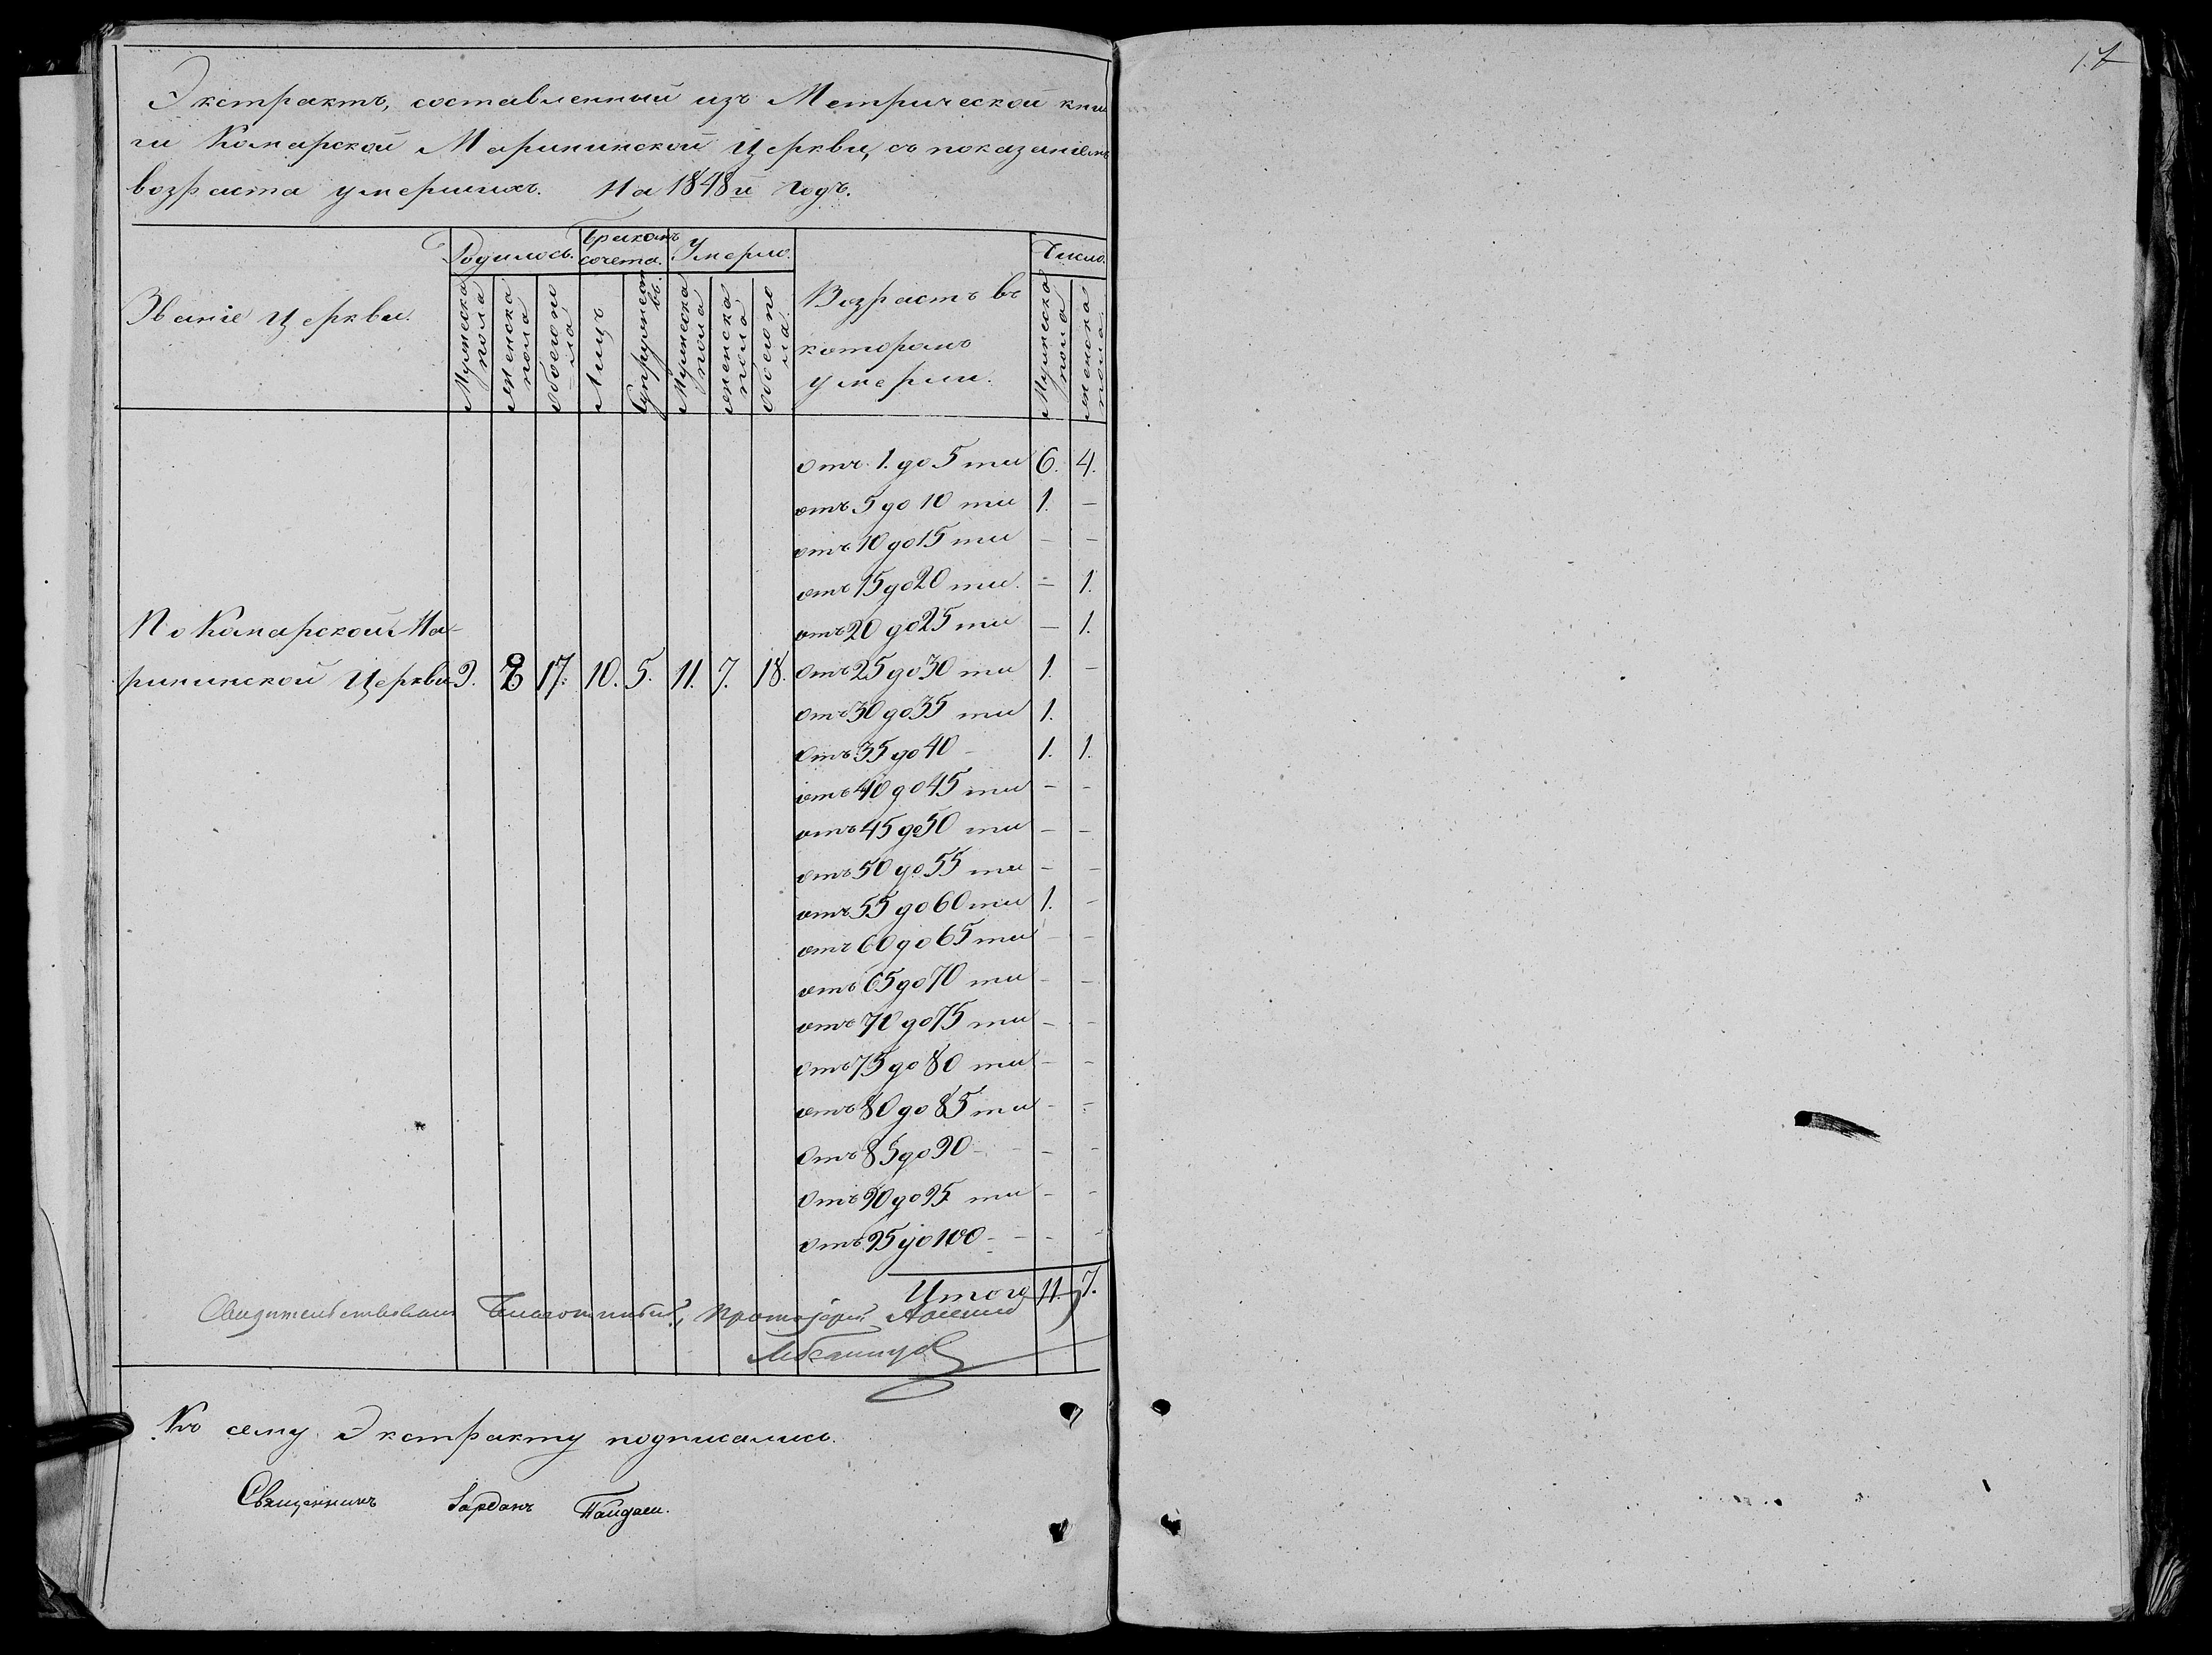 17
Экстрактъ, составленный изъ Метрической кни
ги Комарской Маріинской Церкви, съ показаніемъ
возраста умершихъ. На 1848й годъ.
Званіе Церкви.
Родилось.
Бракомъ сочета.
Умерло.
Возрастъ въ
которомъ
умерли.
Число.
Мужеска пола
женска пола
обоего пола
Лицъ
Супружествъ.
Мужеска пола
женска пола
обоего пола
Мужеска пола
женска пола
отъ 1. до 5 ти 6. 4.
отъ 5 до 10 ти 1. -
отъ 10 до 15 ти - -
отъ 15 до 20 ти. - 1.
По Комарской Ма-
отъ 20 до 25 ти - 1.
рининской Церкви 9. 8 17. 10. 5. 11. 7. 18. отъ 25 до 30 ти 1. -
отъ 30 до 35 ти 1.
отъ 35 до 40 - 1. 1.
отъ 40 до 45 ти - -
отъ 45 до 50 ти - -
отъ 50 до 55 ти - -
отъ 55 до 60 ти 1. -
отъ 60 до 65 ти - -
отъ 65 до 70 ти - -
отъ 70 до 75 ти - -
отъ 75 до 80 ти - -
отъ 80 до 85 ти - -
отъ 85 до 90 - - -
отъ 90 до 95 ти - -
отъ 95 до 100 - - - -
Итого 11. 7.
Свидетельствовалъ Благочинный, Протоіерей
Къ сему Экстракту подписались.
Священникъ